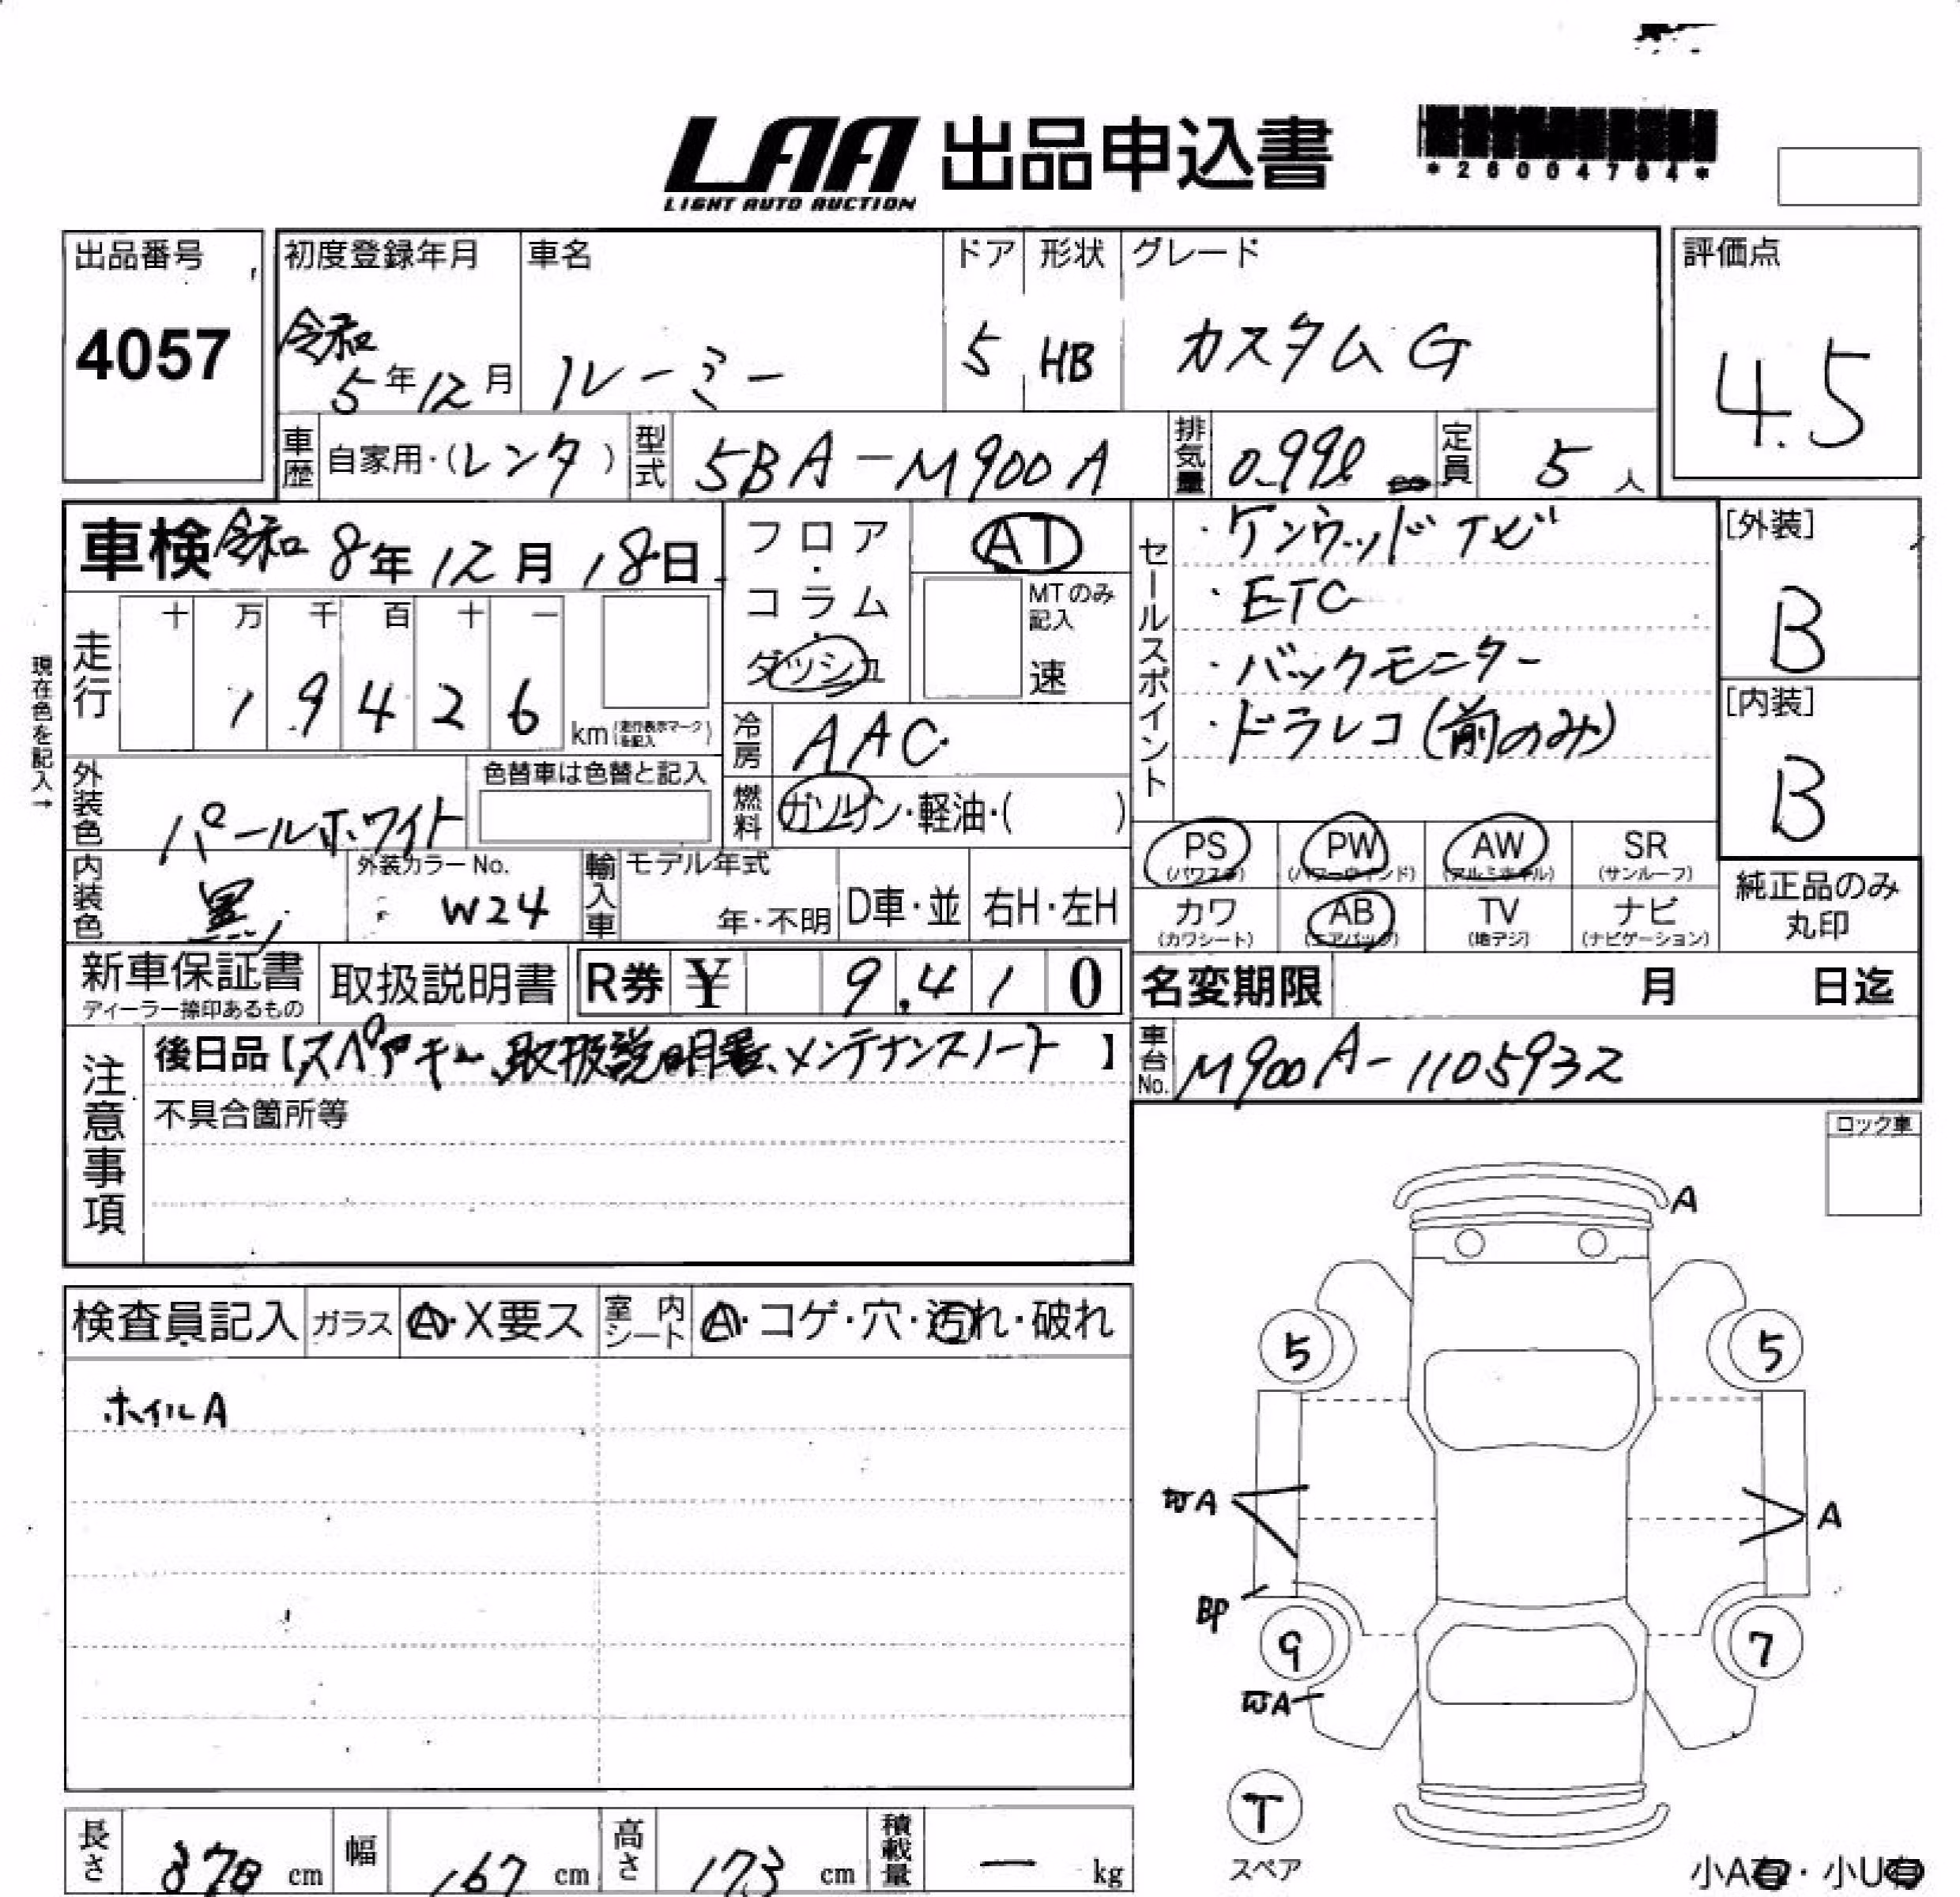 LAA 出品申込書
LIGHT AUTO AUCTION
*26004784*
出品番号
4057
初度登録年月
令和
5年12月
車名
ルーミー
ドア
5
形状
HB
グレード
カスタムG
評価点
4.5
車歴 自家用・(レンタ)
型式 5BA-M900A
排気量 0.99ℓ
定員 5人
車検 令和8年12月18日
現在色を記入→
走行
十 万 千 百 十 一
1 9 4 2 6 km(走行表示マークを記入)
フロア・コラム・ダッシュ
AT
MTのみ記入
速
冷房 AAC
燃料 ガソリン・軽油・( )
外装色 パールホワイト
色替車は色替と記入
内装色 黒
外装カラーNo.
W24
輸入車
モデル年式
年・不明
D車・並
右H・左H
セールスポイント
・ケンウッドナビ
・ETC
・バックモニター
・ドラレコ(前のみ)
[外装]
B
[内装]
B
PS (パワステ)
PW (パワーウインド)
AW (アルミホイル)
SR (サンルーフ)
カワ (カワシート)
AB (エアバック)
TV (地デジ)
ナビ (ナビゲーション)
純正品のみ
丸印
新車保証書
ディーラー捺印あるもの
取扱説明書
R券 ¥ 9,410
名変期限 月 日迄
注意事項
後日品【スペアキー、取扱説明書、メンテナンスノート】
不具合箇所等
車台No. M900A-1105932
ロック車
検査員記入
ガラス A・X要ス
室内シート A・コゲ・穴・汚れ・破れ
ホイルA
A
5
5
A
A
BP
9
7
A
T
スペア
小A有・小U有
長さ 370 cm
幅 167 cm
高さ 173 cm
積載量 ー kg